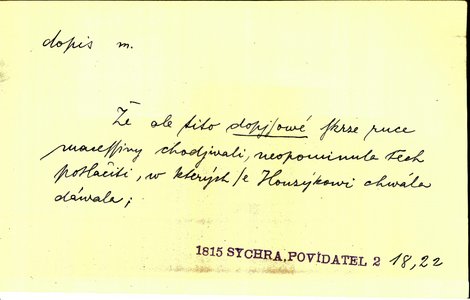 dopis m.
Že ale tito dopj/owé skrze ruce
maceffiny chodjwali, neopominula těch
potlačiti, w kterých /e Honzýkowi chwála
dáwala;
1815 SYCHRA, POVÍDATEL 2 18,22